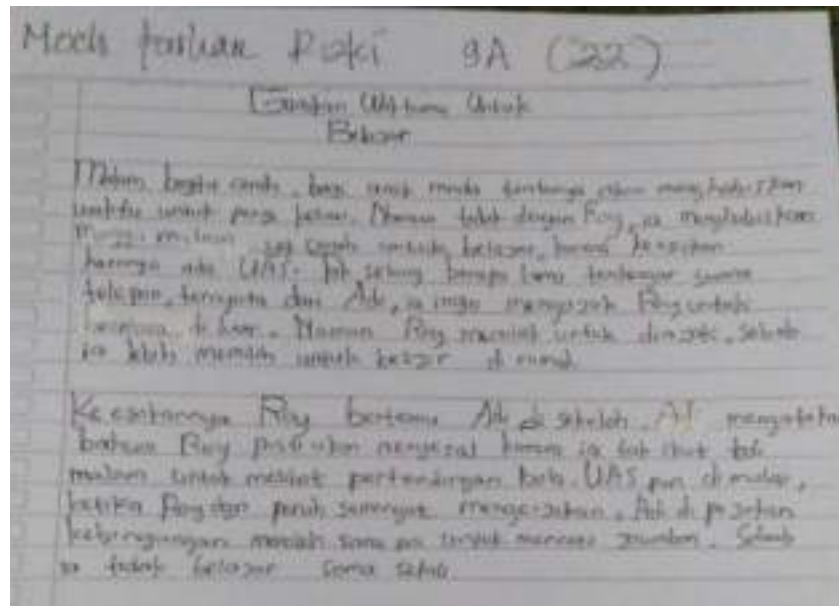 Moch farhan Rizki 9A (22)
Gunakan Waktumu Untuk
Belajar
Malam begitu cerah, bagi anak muda tentunya akan menghabiskan
waktu untuk pergi keluar. Namun tidak dengan Roy, ia menghabiskan
minggu malam yg cerah untuk belajar, karena keesokan
harinya ada UAS. Tak selang berapa lama terdengar suara
telepon, ternyata dari Adi, ia ingin mengajak Roy untuk
di luar. Namun Roy menolak untuk diajak, sebab
ia lebih memilih untuk belajar di rumah.
Ke esokannya Roy bertemu Adi di sekolah. Adi mengatakan
bahwa Roy pasti akan menyesal karena ia tak ikut tadi
malam untuk melihat pertandingan bola. UAS pun di mulai,
ketika Roy dgn penuh semangat mengerjakan. Adi di
kebingungan untuk mencari jawaban. Sebab
ia tidak belajar sama sekali.